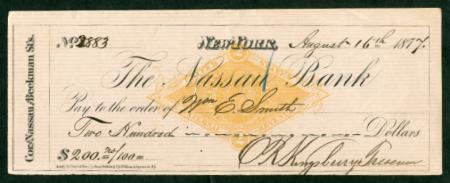 Cor. Nassau & Beekman Sts.
No. 2883 New York, August 16th 1877.
The Nassau Bank
Pay to the order of Wm E. Smith
Two Hundred Dollars
$200.no/100=
O R Kingsbury Treasurer